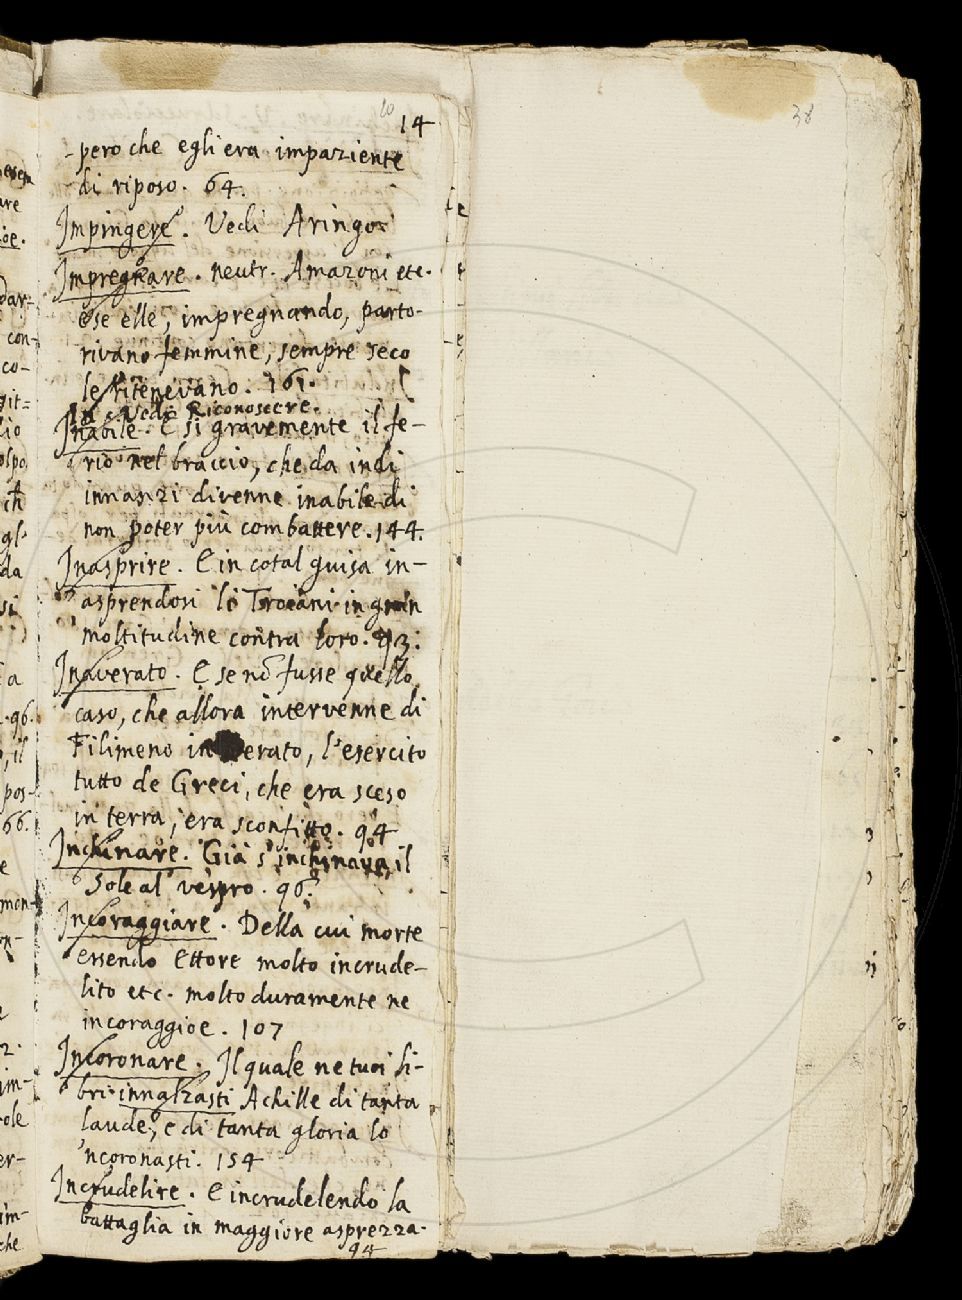 10
14
38
però che egli era impaziente
di riposo. 64.
Impingere. Vedi Aringo
Impregnare. neutr. Amazoni etc.
ese elle, impregnando, parto-
rivano femmine, sempre seco
le ritenevano. 161.
In. Vedi Riconoscere.
Inabile. E sì gravemente il fe-
rio nel braccio, che da indi
innanzi divenne inabile di
non poter più combattere. 144.
Inasprire. E in cotal guisa in-
asprendosi li Troiani in gran
moltitudine contra loro. 93.
Inaverato. E se nō fusse quello
caso, che allora intervenne di
Filimeno in erato, l'esercito
tutto de Greci, che era sceso
in terra, era sconfitto. 94
Inchinare. Già s'inchinava il
Sole al vespro. 96.
Incoraggiare. Della cui morte
essendo Ettore molto incrude-
lito etc. molto duramente ne
incoraggioe. 107
Incoronare. Il quale ne tuoi li-
bri innalzasti Achille di tanta
laude, e di tanta gloria lo
'ncoronasti. 154
Incrudelire. E incrudelendo la
battaglia in maggiore asprezza.
94